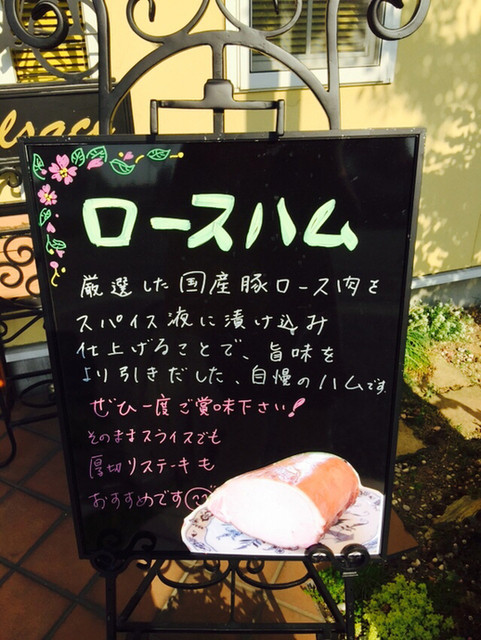 lsace
ロースハム
厳選した国産豚ロース肉を
スパイス液に漬け込み
仕上げることで、旨味を
より引きだした、自慢のハムです。
ぜひ一度ご賞味下さい!
そのままスライスでも
厚切りステーキも
おすすめです